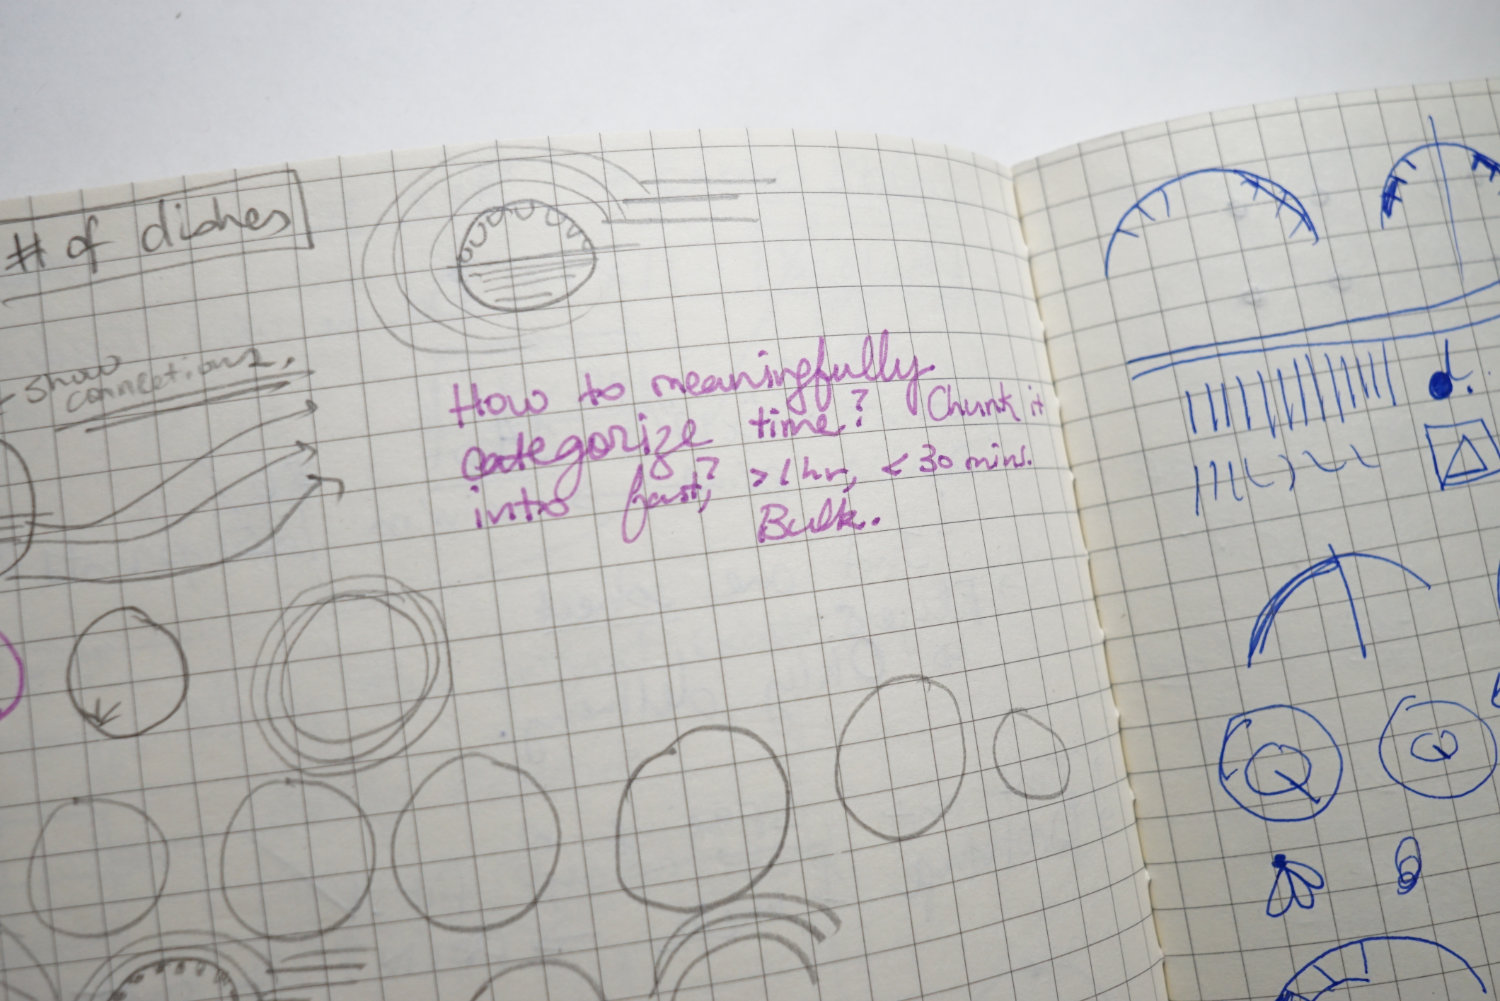 # of dishes
- show
connections.
How to meaningfully
categorize time? Chunk it
into fast? >1 hr, <30 mins.
Bulk.